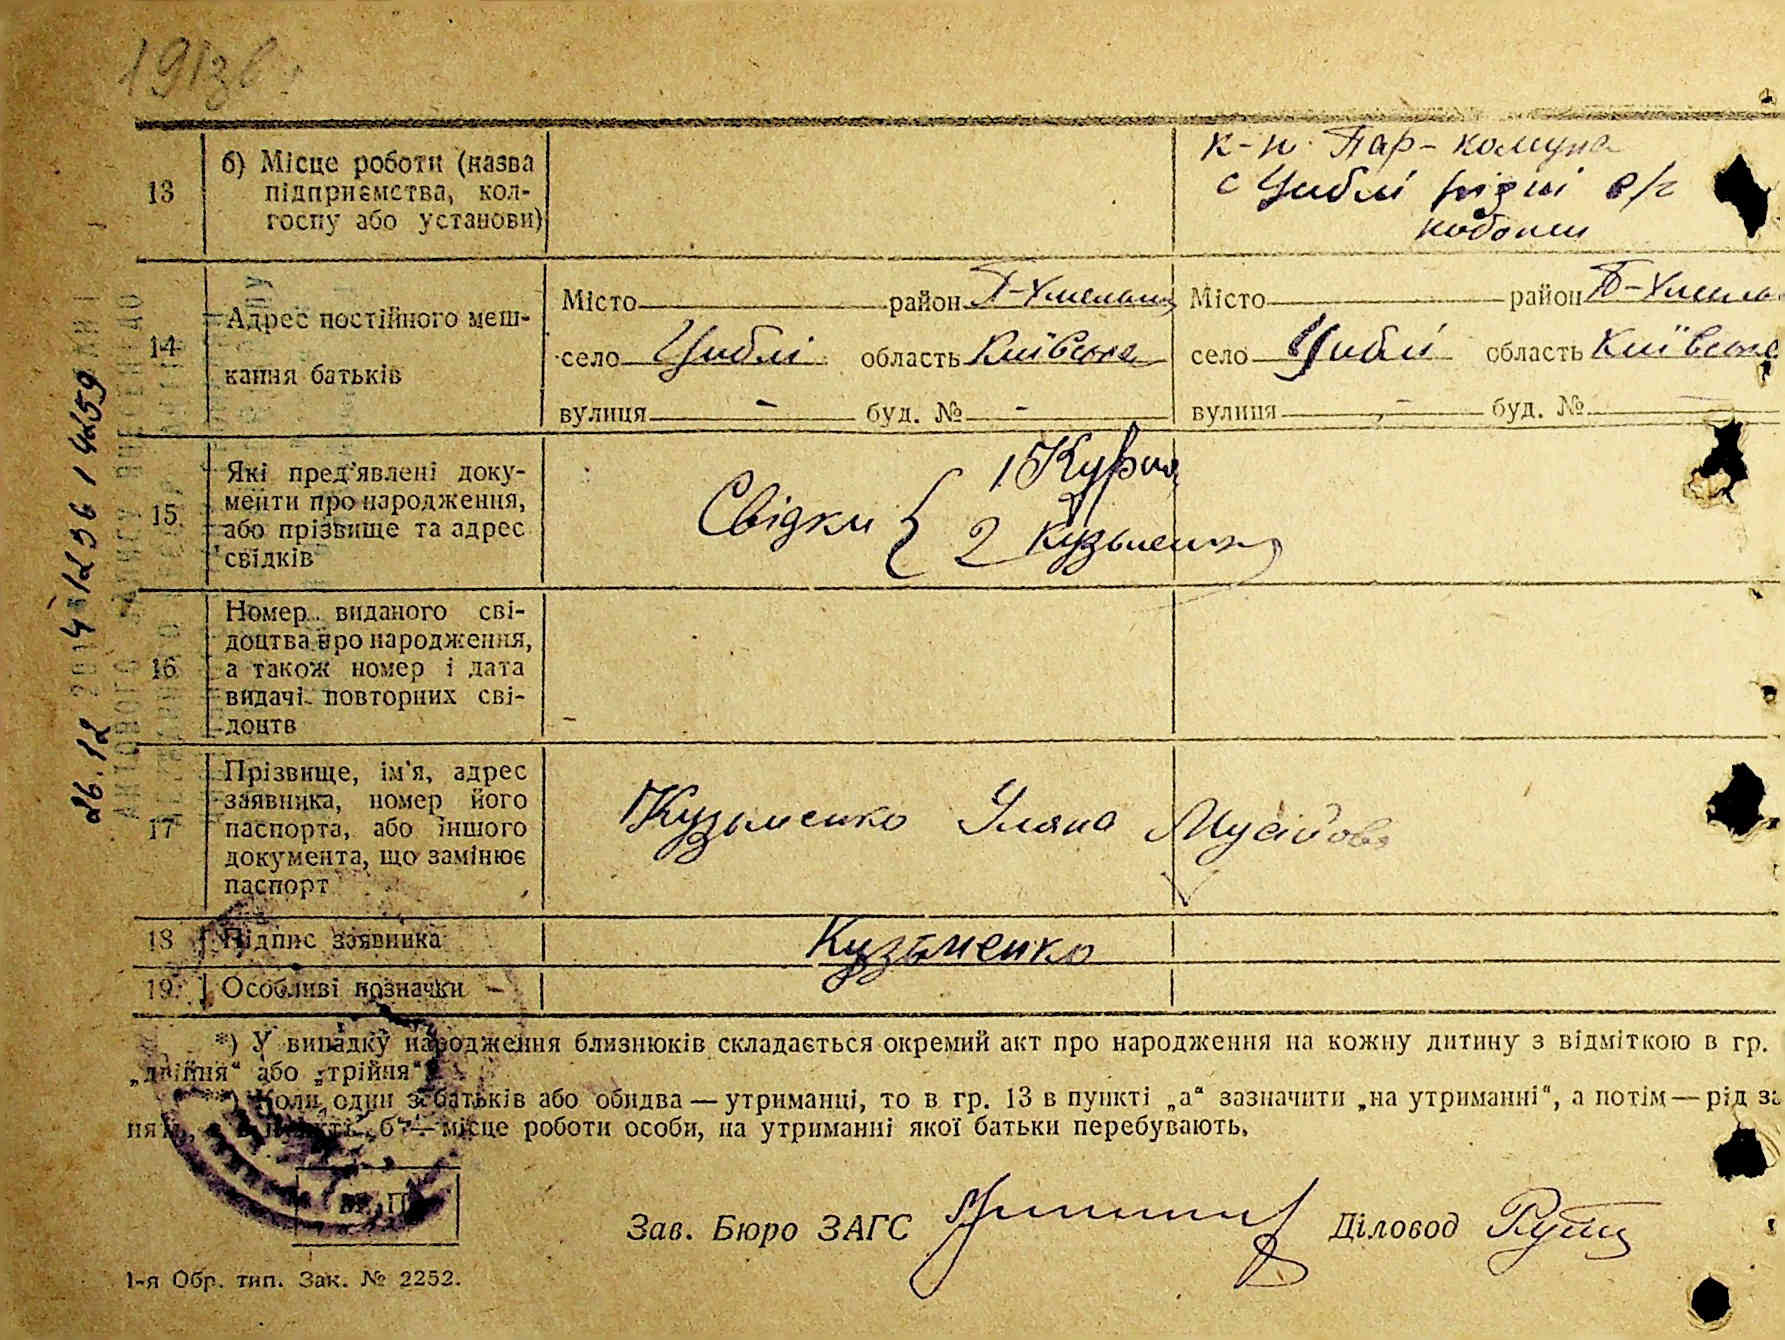 13 б) Місце роботи (назва
підприємства, кол-
госпу або установи)
к-п Пар-комуна
с Циблі
14 Адрес постійного меш-
кання батьків
Місто район П-Хмельниц Місто район П-Хмельн
село Циблі область Київська село Циблі область Київська
вулиця - буд. № - вулиця - буд. №
15 Які пред'явлені доку-
менти про народження,
або прізвище та адрес
свідків
Свідки { 1
2 Кузьменко
16 Номер виданого сві-
доцтва про народження,
а також номер і дата
видачі повторних сві-
доцтв
17 Прізвище, ім'я, адрес
заявника, номер його
паспорта, або іншого
документа, що замінює
паспорт
Кузьменко Уляна Мусійов
18 Підпис заявника Кузьменко
19 Особливі позначки -
*) У випадку народження близнюків складається окремий акт про народження на кожну дитину з відміткою в гр.
„двійня“ або „трійня“.
**) Коли один з батьків або обидва — утриманці, то в гр. 13 в пункті „а“ зазначити „на утриманні“, а потім — рід за
„б“ — місце роботи особи, на утриманні якої батьки перебувають.
М. П.
Зав. Бюро ЗАГС Діловод
1-я Обр. тип. Зак. № 2252.